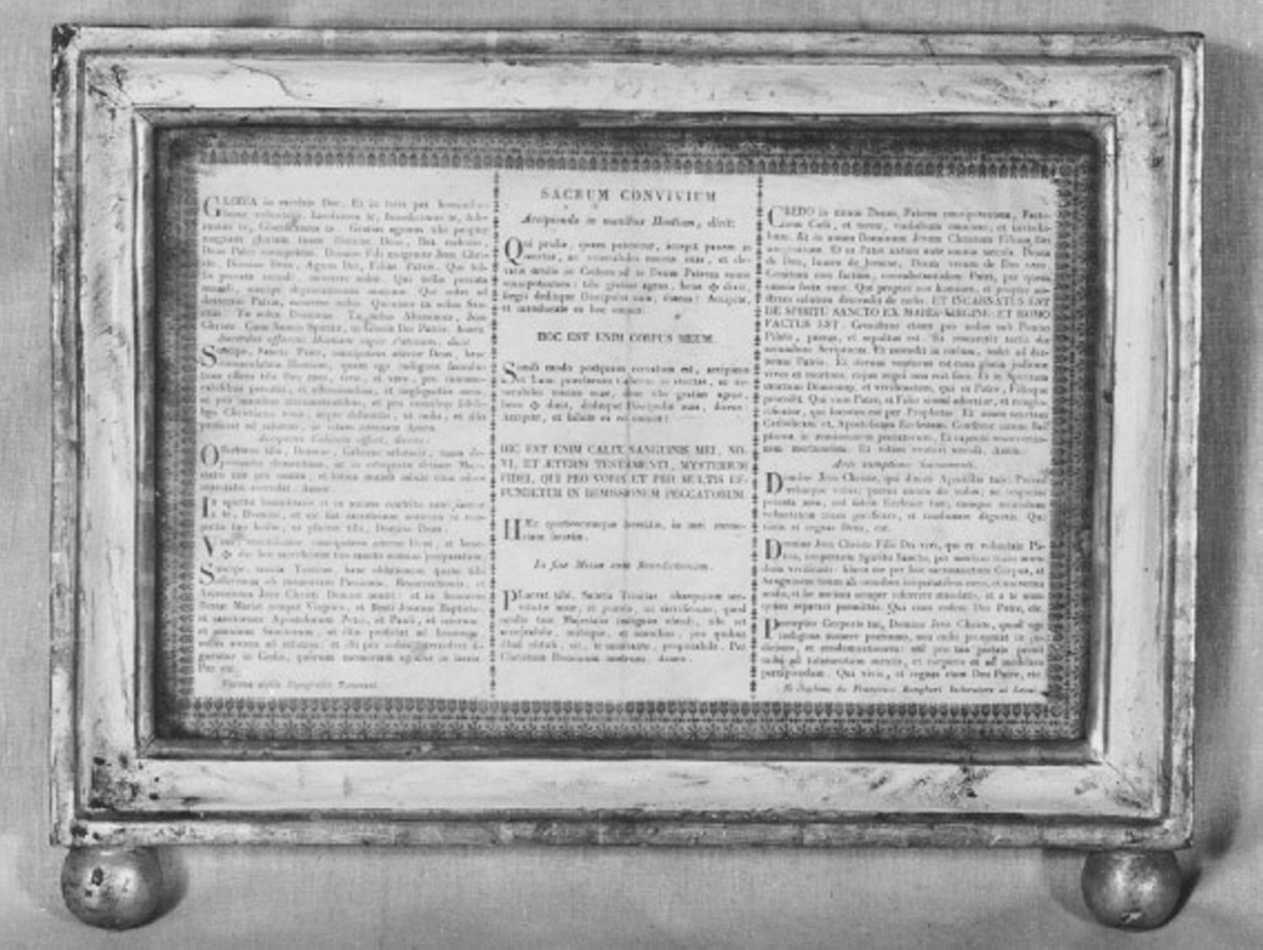 GLORIA in excelsis Deo. Et in terra pax
bonae voluntatis. Laudamus te, benedicimus te,
Glorificamus te. Gratias agimus tibi propter
magnam gloriam tuam Domine Deus, Rex
Deus Pater omnipotens. Domine Fili unigenite Jesu
Domine Deus, Agnus Dei, Filius Patris. Qui
peccata mundi, miserere nobis. Qui tollis peccata
mundi, suscipe deprecationem nostram. Qui sedes ad
dexteram Patris, miserere nobis. Quoniam tu solus
Tu solus Dominus. Tu solus Altissimus, Jesu
Christe. Cum Sancto Spiritu, in Gloria Dei Patris. Amen.
Sacerdos offerens Hostiam super Patenam, dicit
Suscipe, Sancte Pater, omnipotens aeterne Deus, hanc
immaculatam Hostiam, quam ego indignus
Deo meo, vivo, et vero, pro
peccatis, et offensionibus, et negligentiis
et pro omnibus circumstantibus, et pro omnibus
Christianis
proficiat ad salutem, in vitam aeternam. Amen.
Offerimus tibi, Domine, Calicem salutaris, tuam
clementiam, ut in conspectu divinae
Amen.
In spiritu humilitatis et in animo contrito
te, Domine, et sic fiat sacrificium nostrum in
tuo hodie, ut placeat tibi, Domine Deus.
Veni Sanctificator omnipotens aeterne Deus, et
✠ dic hoc sacrificium tuo sancto nomini praeparatum.
Suscipe, sancta Trinitas, hanc oblationem, quam tibi
offerimus ob memoriam Passionis, Resurrectionis, et
Ascensionis Jesu Christi Domini nostri: et in honorem
Beatae Mariae semper Virginis, et Beati Joannis Baptistae,
et sanctorum Apostolorum Petri, et Pauli, et istorum
et omnium Sanctorum, ut illis proficiat ad honorem,
nobis autem ad salutem: et illi pro nobis intercedere
in Coelis, quorum memoriam agimus in terris.
Per etc.
SACRUM CONVIVIUM
Accipiendo in manibus Hostiam, dicit:
Qui pridie, quam pateretur, accepit panem in
sanctas, ac venerabiles manus suas, et
oculis in Coelum ad te Deum Patrem suum
omnipotentem: tibi gratias agens, bene ✠ dixit,
fregit deditque Discipulis suis, dicens: Accipite,
et manducate ex hoc omnes:
HOC EST ENIM CORPUS MEUM.
Simili modo postquam coenatum est, accipiens
et hunc praeclarum Calicem in sanctas, ac
venerabiles manus suas, item tibi gratias agens,
bene ✠ dixit, deditque Discipulis suis, dicens:
Accipite, et bibite ex eo omnes:
HIC EST ENIM CALIX SANGUINIS MEI, NO-
VI, ET AETERNI TESTAMENTI, MYSTERIUM
FIDEI, QUI PRO VOBIS ET PRO MULTIS EF-
FUNDETUR IN REMISSIONEM PECCATORUM.
Haec quotiescumque feceritis, in mei memo-
riam facietis.
In fine Missae ante Benedictionem.
Placeat tibi, Sancta Trinitas obsequium ser-
vitutis meae, et praesta, ut sacrificium, quod
oculis tuae Majestatis indignus obtuli, tibi sit
acceptabile, mihique, et omnibus, pro quibus
illud obtuli, sit, te miserante, propitiabile. Per
Christum Dominum nostrum. Amen.
CREDO in unum Deum, Patrem omnipotentem, Facto-
rem Coeli, et terrae, visibilium omnium, et invisibi-
lium. Et in unum Dominum Jesum Christum Filium Dei
unigenitum. Et ex Patre natum ante omnia saecula. Deum
de Deo, lumen de lumine, Deum verum de Deo vero.
Genitum non factum, consubstantialem Patri, per quem
omnia facta sunt. Qui propter nos homines, et propter no-
stram salutem descendit de coelis. ET INCARNATUS EST
DE SPIRITU SANCTO EX MARIA VIRGINE: ET HOMO
FACTUS EST. Crucifixus etiam pro nobis sub Pontio
Pilato, passus, et sepultus est. Et resurrexit tertia die
secundum Scripturas. Et ascendit in coelum, sedet ad dex-
teram Patris. Et iterum venturus est cum gloria judicare
vivos et mortuos, cujus regni non erit finis. Et in Spiritum
sanctum Dominum, et vivificantem, qui ex Patre, Filioque
procedit. Qui cum Patre, et Filio simul adoratur, et conglo-
rificatur, qui locutus est per Prophetas. Et unam sanctam
Catholicam et, Apostolicam Ecclesiam. Confiteor unum Bap-
tisma in remissionem peccatorum. Et expecto resurrectio-
nem mortuorum. Et vitam venturi saeculi. Amen.
Ante sumptionem Sacramenti.
Domine Jesu Christe, qui dixisti Apostolis tuis: Pacem
relinquo vobis: pacem meam do vobis; ne respicias
peccata mea, sed fidem Ecclesiae tuae; eamque secundum
voluntatem tuam pacificare, et coadunare digneris. Qui
vivis et regnas Deus, etc.
Domine Jesu Christe Fili Dei vivi, qui ex voluntate Pa-
tris, cooperante Spiritu Sancto, per mortem tuam mun-
dum vivificasti: libera me per hoc sacrosanctum Corpus, et
Sanguinem tuum ab omnibus iniquitatibus meis, et universis
malis, et fac me tuis semper inhaerere mandatis, et a te num-
quam separari permittas. Qui cum eodem Deo Patre, etc.
Perceptio Corporis tui, Domine Jesu Christe, quod ego
indignus sumere praesumo, non mihi proveniat in ju-
dicium, et condemnationem: sed pro tua pietate prosit
mihi ad tutamentum mentis, et corporis et ad medelam
percipiendam. Qui vivis, et regnas cum Deo Patre, etc.